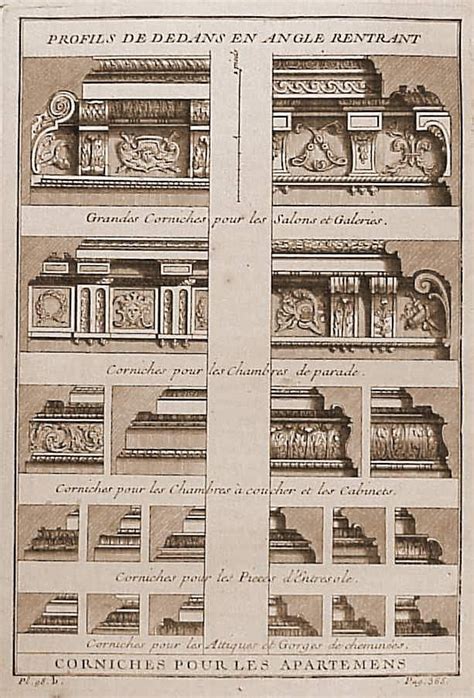 PROFILS DE DEDANS EN ANGLE RENTRANT
pieds
Grandes Corniches pour les Salons et Galeries.
Corniches pour les Chambres de parade.
Corniches pour les Chambres à coucher et les Cabinets.
Corniches pour les Pieces d'Entresole.
Corniches pour les Attiques et Gorges de cheminées.
CORNICHES POUR LES APARTEMENS
Pl. 98. b. Pag. 365.